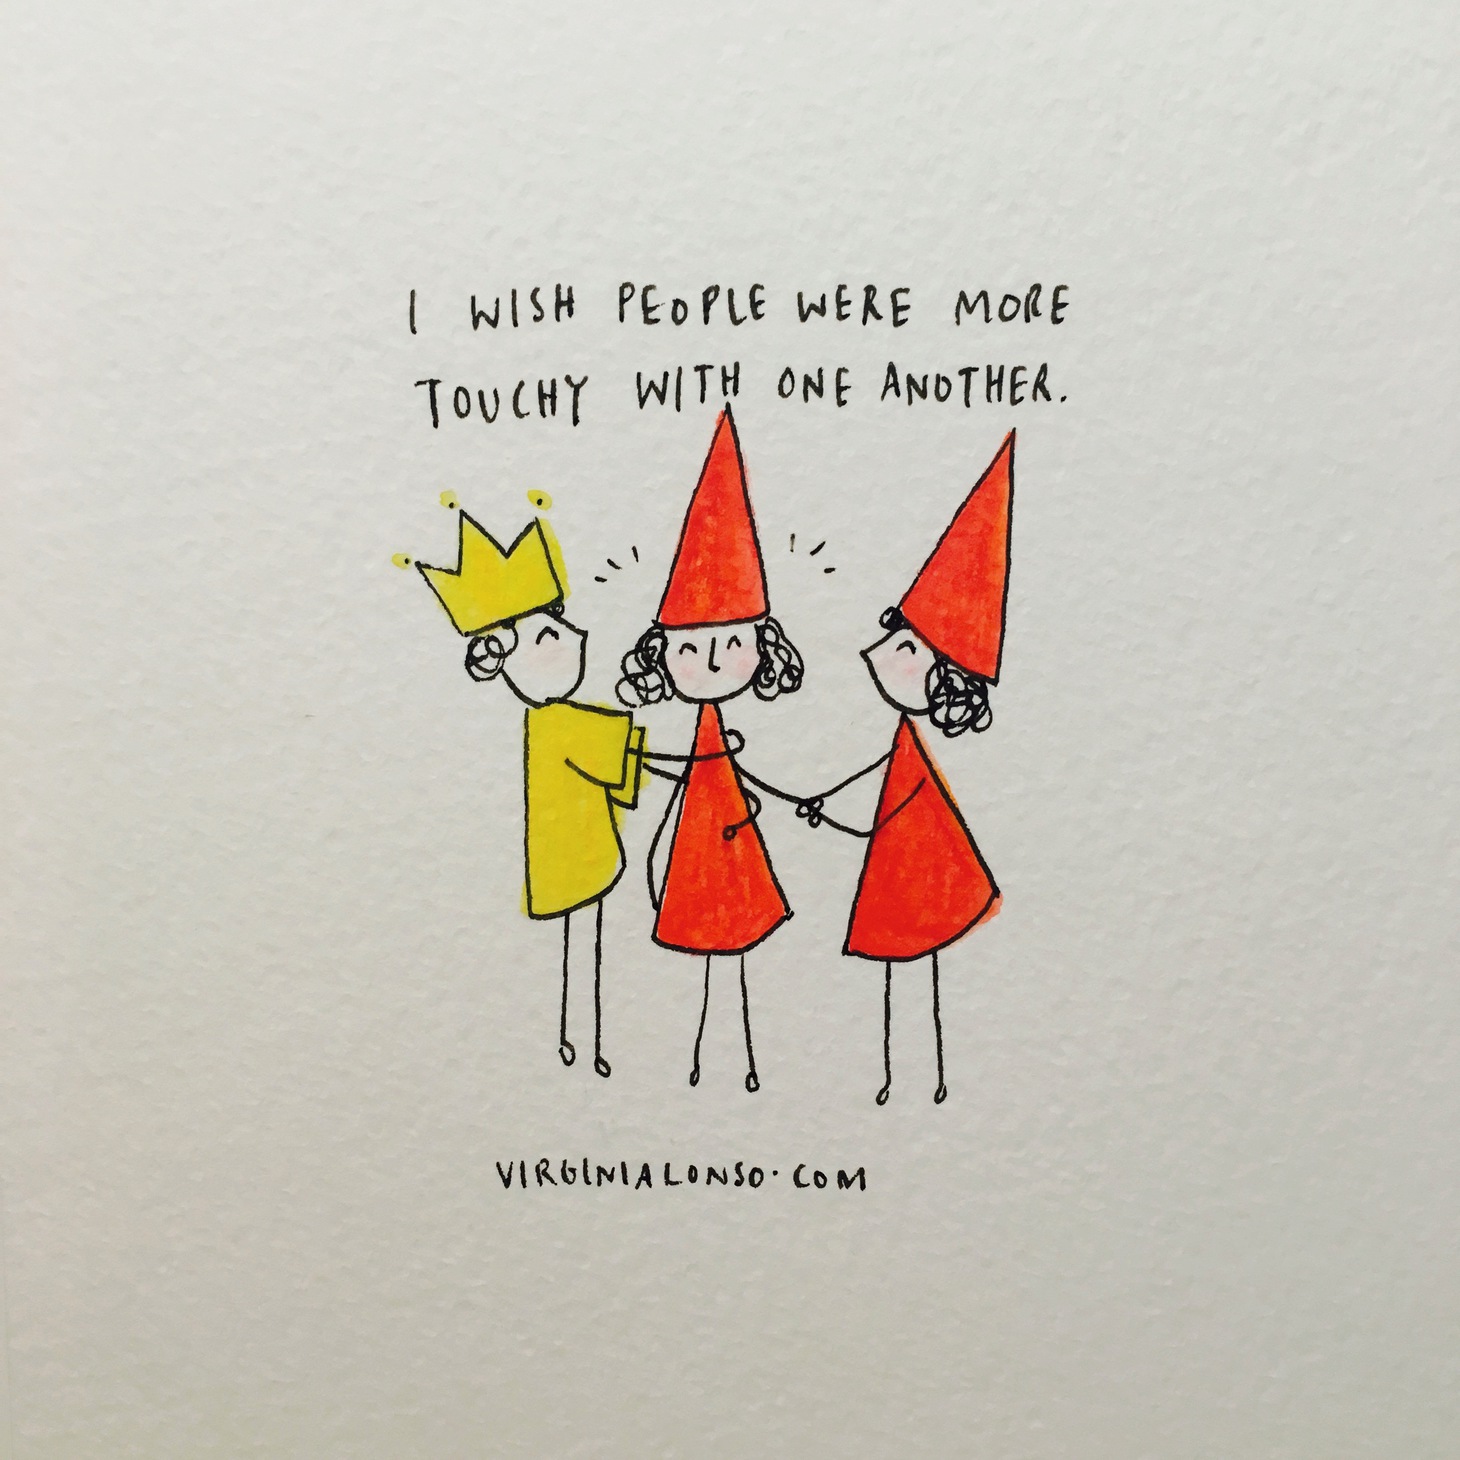 I WISH PEOPLE WERE MORE
TOUCHY WITH ONE ANOTHER.
VIRGINIALONSO.COM